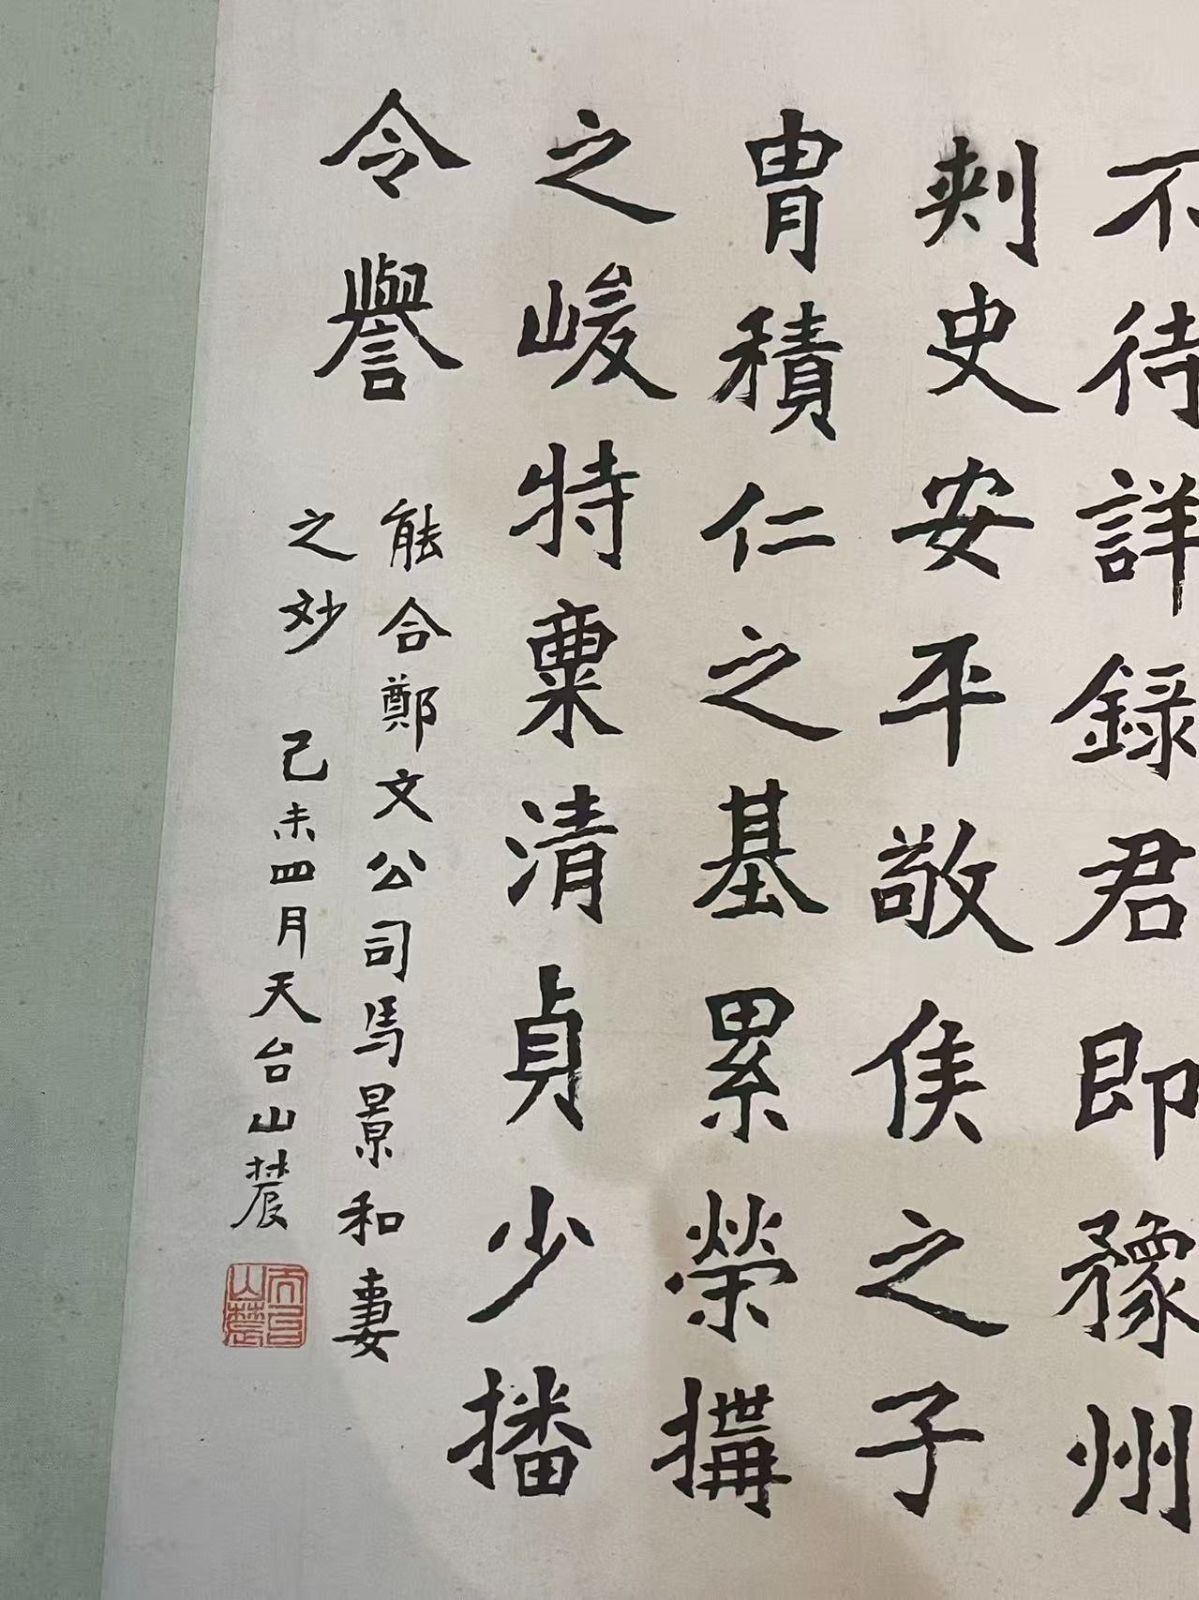 不待詳録君即豫州
刾史安平敬侯之子
胄積仁之基累榮搆
之峻特稟清貞少播
令譽
能合鄭文公司馬景和妻
之妙 己未四月天台山農
天台山農